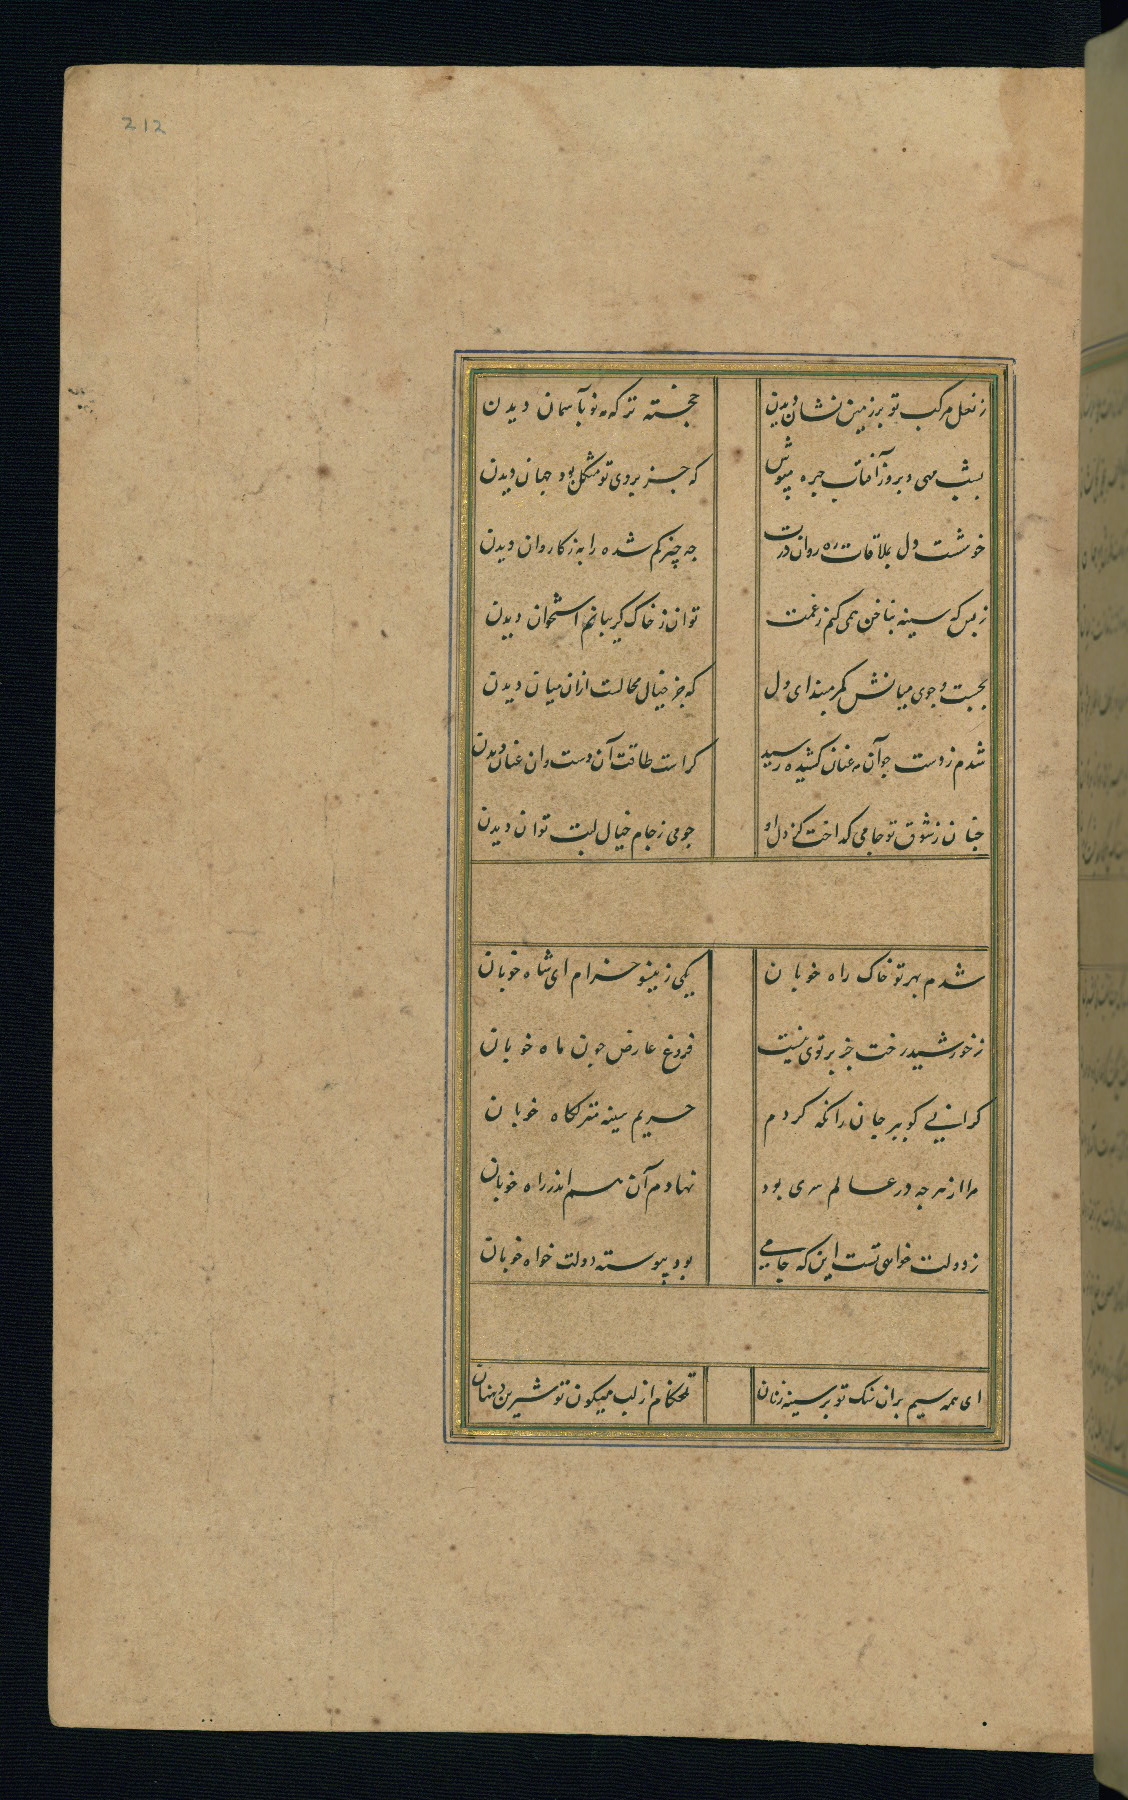 212
ز نعل مرکب تو بر زمین نشان دیدن خجسته تر که مه نو بآسمان دیدن
بشب مهی و بروز آفتاب چهره مپوش که جز بروی تو مشکل بود جهان دیدن
خوشست دل بملاقات ره روان درت چه چیز کم شده را به ز کاروان دیدن
ز بس که سینه بناخن همی کنم ز غمت توان ز خاک کریبانم استخوان دیدن
بجست و جوی میانش کمر مبند ای دل که جز خیال محالست ازان میان دیدن
شدم ز دست چو آن مه عنان کشیده رسید کراست طاقت آن دست و ان عنان دیدن
چنان ز شوق تو جامی کداخت کز دل او چو می ز جام خیال لبت توان دیدن
شدم بهر تو خاک راه خوبان یکی زینسو خرام ای شاه خوبان
ز خورشید رخت جز پرتوی نیست فروغ عارض چون ماه خوبان
کرانیی کو ببر جان را نکه کردم حریم سینه منزلکاه خوبان
مرا از هر چه در عالم سری بود نهادم آن هم اندر راه خوبان
ز دولت خواهی تست این که جامی بود پیوسته دولت خواه خوبان
ای همه سیم بران سنک تو بر سینه زنان تلخکام از لب میکون تو شیرین دهنان